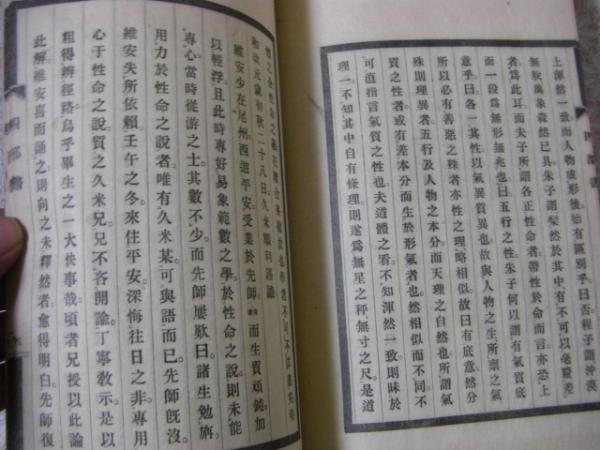 上渾然一致而人物成形後始有區別乎曰否程子謂沖漠
無眹萬象森然已具朱子謂粲然於其中有不可以毫釐差
者爲此耳而夫子所謂各正性命者帶性於命而言亦恐上
面一段爲無形無兆也曰五行之性朱子何以謂有氣質底
意乎曰各一其性以氣異質異也故與人物之生所稟之氣
所以必有善惡之殊者亦性之理略相似故曰有底意然分
殊則理異者五行及人物之本分而天理之自然也所謂氣
質之性者或有差本分而生於形氣者也然相似而不同不
可直指言氣質之性也夫道體之看不知渾然一致則昧於
理一不知其中自有條理則遂爲無星之秤無寸之尺是道
和次元歲初秋二十八日久米順利謹識
維安少在尾州西遊平安受業於先師而生質頑鈍加
以輕浮且此時專好易象範數之學於性命之說則未能
專心當時從游之士其數不少而先師屢歎曰諸生勉旃
用力於性命之說者唯有久米某可與語而已先師旣沒
維安失所依賴壬午之冬來住平安深悔往日之非專用
心于性命之說質之久米兄兄不吝開諭丁寧敎示是以
粗得辨徑路烏乎畢生之一大快事哉頃者兄授以此論
此解維安喜而誦之則向之未釋然者愈得明白先師復